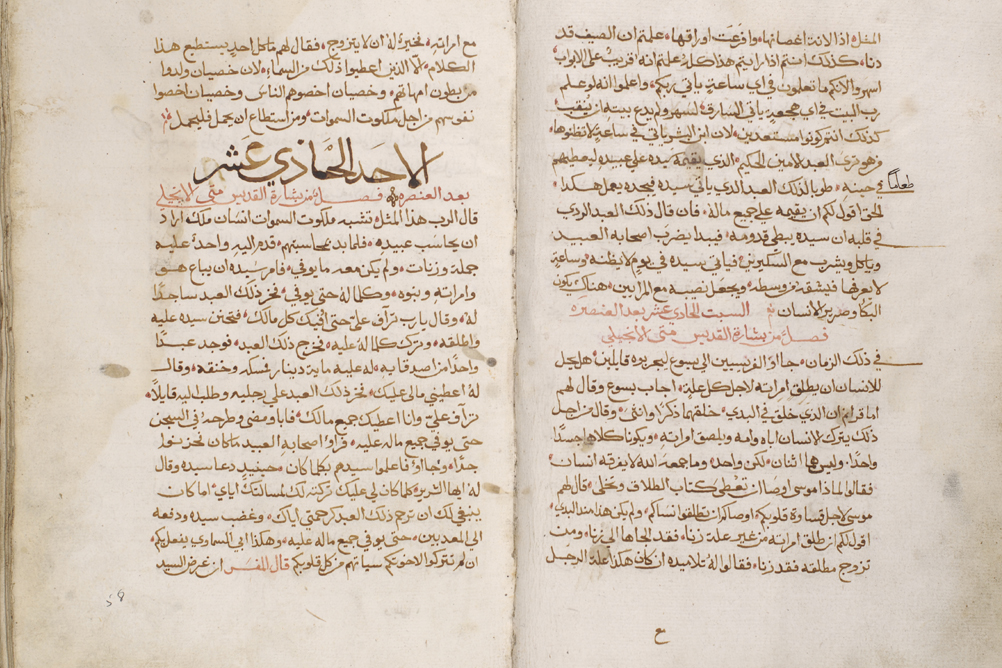 المثل اذا لانت اغصانها وافرعت اوراقها علمتم ان الصيف قد
دنا كذلك انتم اذا رايتم هذا كله علمتم انه قريب على الابواب
اسهروا لانكم ما تعلمون في اي ساعة ياتي ربكم واعلموا انه لو علم
رب البيت في اي هجعة ياتي السارق لسهر ولم يدع بيته ان ينقب
كذلك انتم كونوا مستعدين لان ابن البشر ياتي في ساعة لا تظنوها
من هو ترى العبد الامين الحكيم الذي يقيمه سيده على عبيده ليعطيهم
طعامًا
في حينه طوبا لذلك العبد الذي ياتي سيده فيجده يعمل هكذا
الحق اقول لكم ان يقيمه على جميع ماله فان قال ذلك العبد الردي
في قلبه ان سيده يبطي قدومه فيبدا يضرب اصحابه العبيد
وياكل ويشرب مع السكيرين فياتي سيده في يوم لا يظنه وساعة
لا يعرفها فيشقه من وسطه ويجعل نصيبه مع المرايين هناك يكون
البكا وصرير الاسنان السبت الحادي عشر بعد العنصرة
فصل من بشارة القديس متى الانجيلي
في ذلك الزمان جااو الفريسيين الى يسوع ليجربوه قايلين هل يحل
للانسان ان يطلق امراته لاجل كل علة اجاب يسوع وقال لهم
اما قراتم ان الذي خلق في البدي خلقهما ذكرًا وانثى وقال من اجل
ذلك يترك الانسان اباه وامه ويلصق امراته ويكونا كلاهما جسدًا
واحدًا وليس هما اثنان لكن واحد وما جمعه الله لا يفرقه انسان
فقالوا لماذا موسى اوصا ان تعطى كتاب الطلاق وتخلى قال لهم
موسى لاجل قساوة قلوبكم اوصاكم ان تطلقوا نساكم ولم يكن هذا منذ البدي
اقول لكم ان من طلق امراته من غير علة زنا فقد الجاها الى زنا ومن
تزوج مطلقه فقد زنا فقالوا له تلاميذه ان كان هكذا علة الرجل
ع
مع امراته فخير له ان لا يتزوج فقال لهم ما كل احد يستطيع هذا
الكلام الا الذين اعطيوا ذلك من السماء لان خصيان ولدوا
من بطون امهاتهم وخصيان اخصوهم الناس وخصيان اخصوا
نفوسهم من اجل ملكوت السموات ومن استطاع ان يحمل فليحمل
الاحد الحادي عشر
بعد العنصرة فصل من بشارة القديس متى الانجيلي
قال الرب هذا المثل تشبه ملكوت السموات انسان ملك اراد
ان يحاسب عبيده فلما بدا بمحاسبتهم قدم اليه واحدًا عليه
جملة وزنات ولم يكن معه ما يوفي فامر سيده ان يباع هو
وامراته وبنوه وكلما له حتى يوفي فخر ذلك العبد ساجدًا
له وقال يارب تراف علي حتى افيك كل مالك فتحنن سيده عليه
واطلقه وترك كلما له عليه فخرج ذلك العبد فوجد عبدًا
واحدًا من اصدقايه له عليه ماية دينار فمسكه وخنقه وقال
له اعطيني مالي عليك فخر ذلك العبد على رجليه وطلب اليه قايلًا
تراف علي وانا اعطيك جميع مالك فابا ومضى وطرحه في السجن
حتى يوفي جميع ماله عليه فراوا اصحابه العبيد ما كان فحزنوا
جدًا وجااو فاعلموا سيدهم بكلما كان حينيذ دعا سيده وقال
له ايها الشرير كلما كان لي عليك تركته لك لمسالتك اياي اما كان
ينبغي لك ان ترحم ذلك العبد كرحمتي اياك وغضب سيده ودفعه
الى المعذبين حتى يوفي جميع ماله عليه وهكذا ابي السماوي يفعل بكم
ان لم تتركوا لاخوتكم سياتهم من كل قلوبكم قال المفسر ان غرض السيد